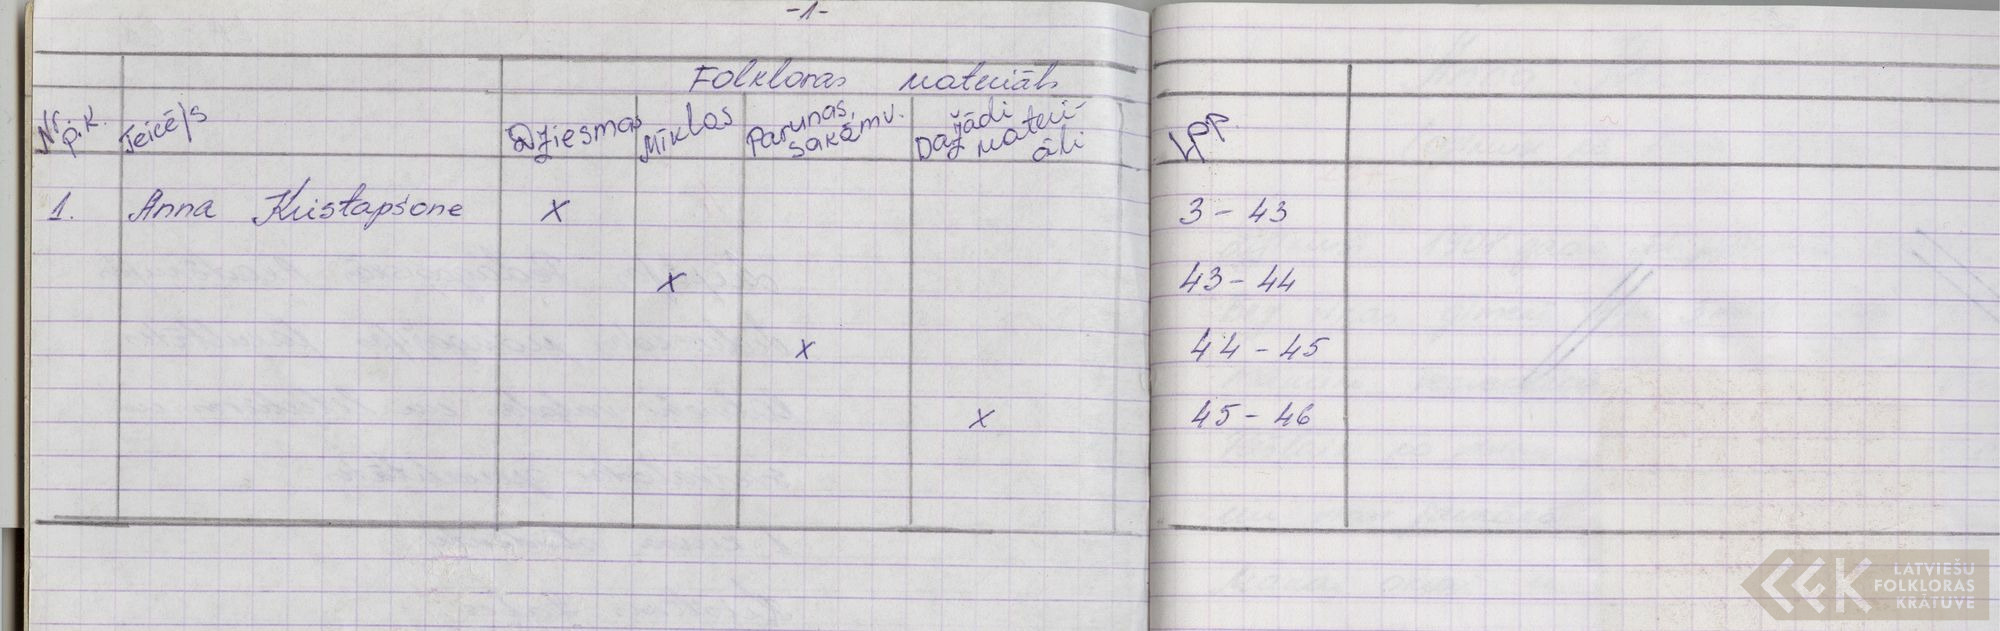 -1-
Folkloras materiāls
Nr. p.k. Teicējs Dziesmas Mīklas Parunas, sakāmv. Dažādi materiāli lpp.
1. Anna Kristapsone X 3 - 43
X 43 - 44
X 44 - 45
X 45 - 46
LATVIEŠU
FOLKLORAS
KRĀTUVE